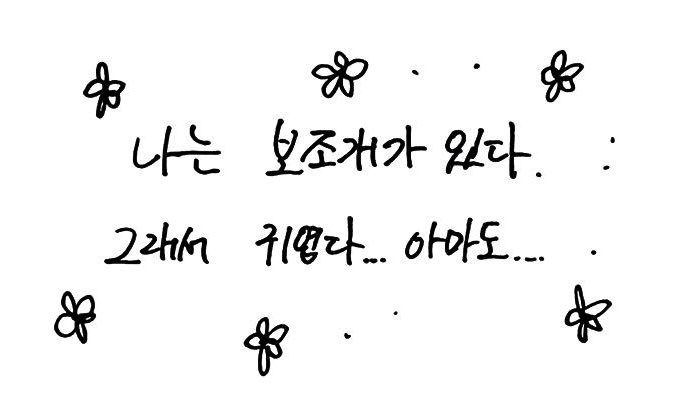 나는 보조개가 있다.
그래서 귀엽다... 아마도...